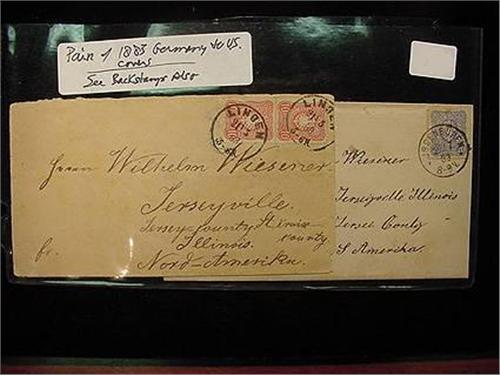 Pair of 1883 Germany to US.
covers
See Backstamps Also
LINDEN
LINDEN
Herrn Wilhelm Wiesener
Jerseyville.
Jersey-County
Illinois. County
Nord-Amerika.
fr.
Wiesener
Jerseyville Illinois
Jersei County
S Amerika.